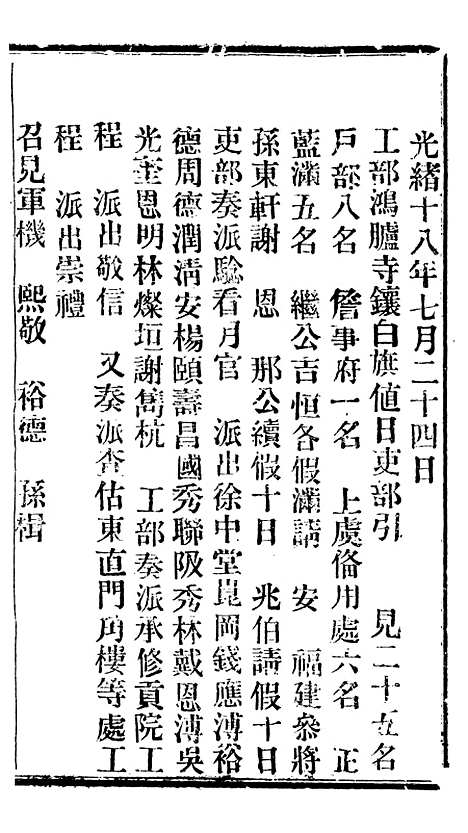 光緒十八年七月二十四日
工部鴻臚寺鑲白旗值日吏部引　見二十五名
戶部八名　詹事府一名　上虞備用處六名　正
藍滿五名　繼公吉恒各假滿請　安　福建參將
孫東軒謝　恩　那公續假十日　兆伯請假十日
吏部奏派驗看月官　派出徐中堂崑岡錢應溥裕
德周德潤清安楊頤壽昌國秀聯阪秀林戴恩溥吳
光奎恩明林燦垣謝雋杭　工部奏派承修貢院工
程　派出敬信　又奏派查估東直門角樓等處工
程　派出崇禮
召見軍機　熙敬　裕德　孫楫